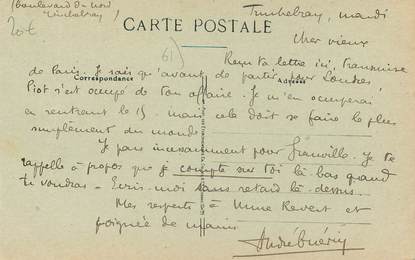 (boulevard du nord
Tinchebray)
CARTE POSTALE
Tinchebray, mardi
Cher vieux
Reçu ta lettre ici, transmise
Correspondance
de Paris. Je sais qu'avant de partir pour Londres
Piot s'est occupé de ton affaire. Je m'en occuperai
en rentrant le 15 - mais cela doit se faire le plus
simplement du monde
Je pars incessamment pour Granville. Je te
rappelle à propos que je compte sur toi là-bas quand
tu voudras - Ecris-moi sans retard là-dessus.
Mes respects à Mme Revert et
poignée de mains
André Guérin